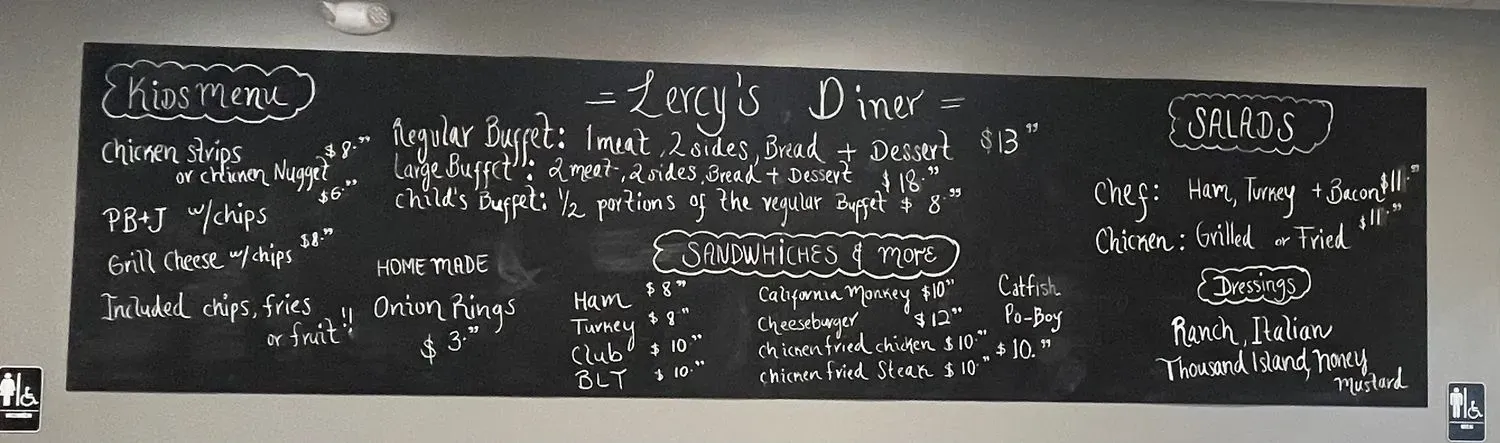 = Lercy's Diner =
Kids menu
Chicken strips
or chicken Nugget $8.99
PB+J w/chips $6.99
Grill Cheese w/chips $8.99
Included chips, fries
or fruit!!
Regular Buffet: 1 meat, 2 sides, Bread + Dessert $13 99
Large Buffet: 2 meat, 2 sides, Bread + Dessert $18.99
Child's Buffet: 1/2 portions of the regular Buffet $8.99
HOME MADE
Onion Rings
$3.99
SANDWHICHES & more
Ham $8 99
Turkey $8 99
Club $10 99
BLT $10.99
California Monkey $10 99
Cheeseburger $12 99
chicken fried chicken $10.99
chicken fried Steak $10.99
Catfish
Po-Boy
$10.99
SALADS
Chef: Ham, Turkey + Bacon $11.99
Chicken: Grilled or Fried $11.99
Dressings
Ranch, Italian
Thousand Island, honey
Mustard